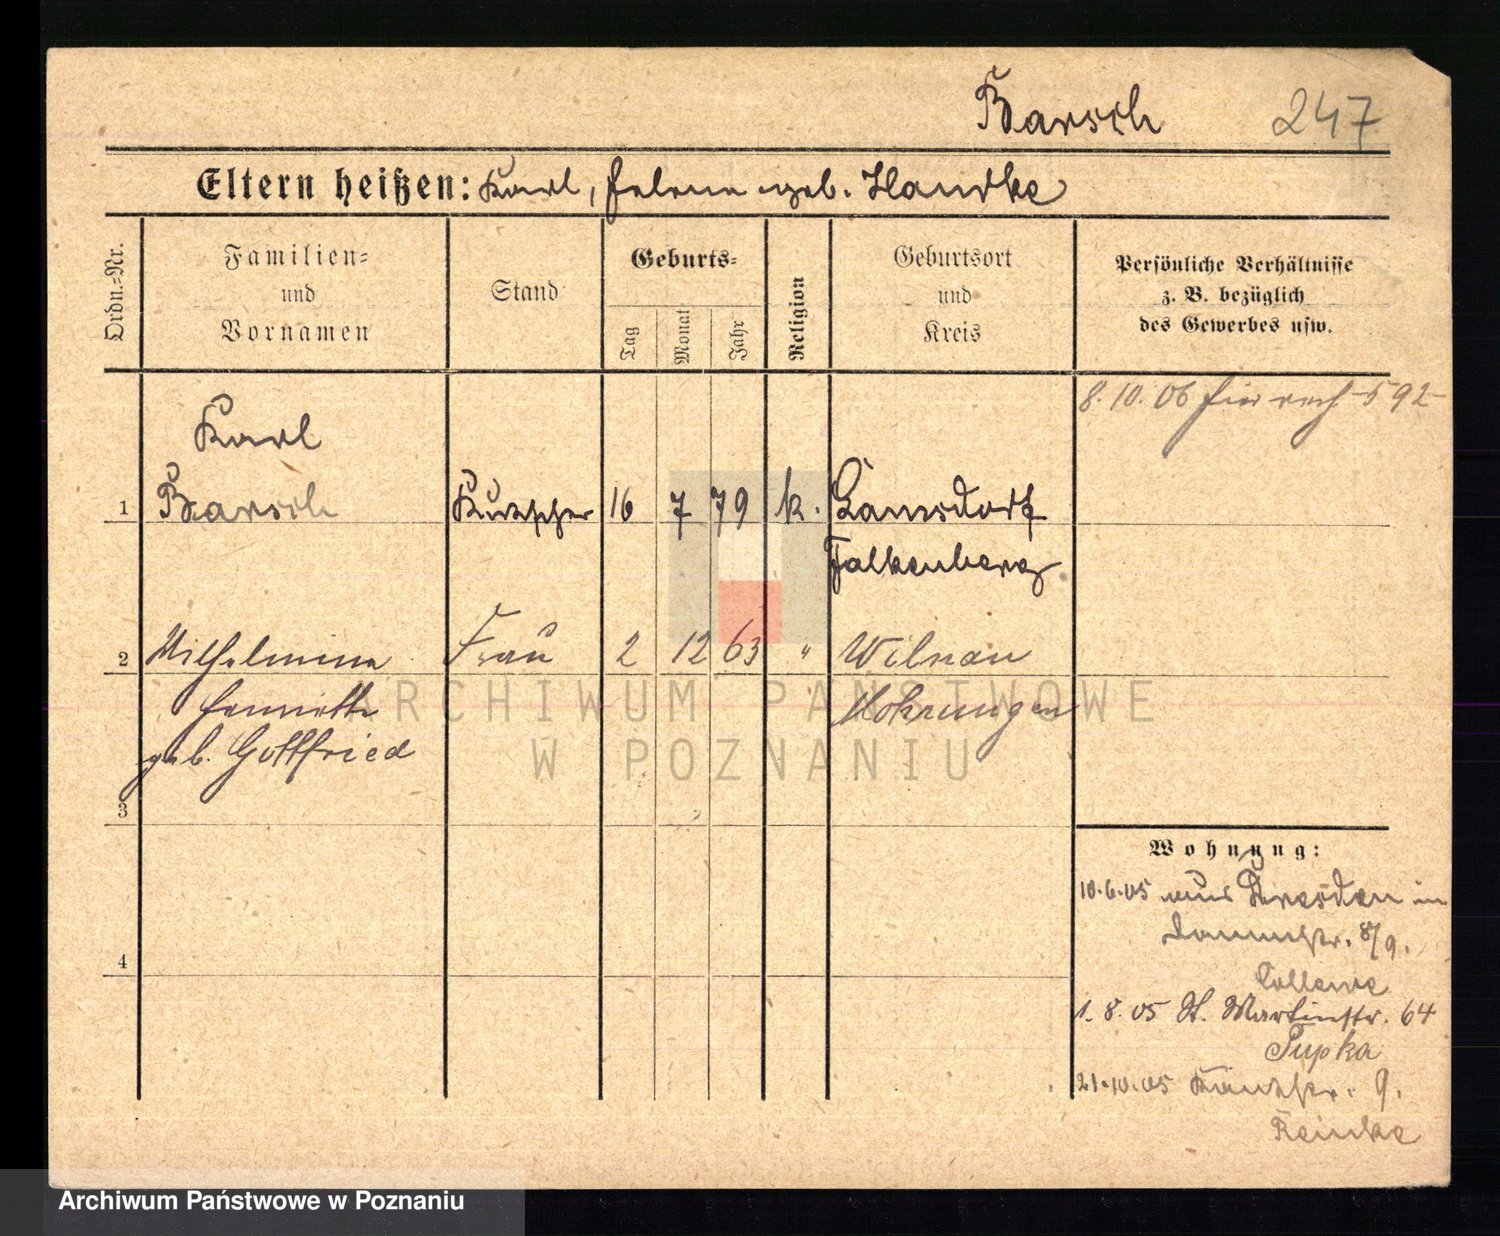 Barsch 247
Eltern heißen: Karl, Helene geb. Handke
Ordn.-Nr.
Familien-
und
Vornamen
Stand
Geburts-
Tag
Monat
Jahr
Religion
Geburtsort
und
Kreis
Persönliche Verhältnisse
z. B. bezüglich
des Gewerbes usw.
8. 10. 06 592
Karl
1 Barsch Kutscher 16 7 79 k. Lamsdorf
Falkenberg
2 Wilhelmine Frau 2 12 63 " Wilnau
Henriette Mohrungen
geb. Gottfried
3
4
Wohnung:
10.6.05 aus Dresden in
Dammstr. 8/9.
1. 8. 05 St. Martinstr. 64
Pupka
21.10.05 9.
Reinke
ARCHIWUM PAŃSTWOWE
W POZNANIU
Archiwum Państwowe w Poznaniu